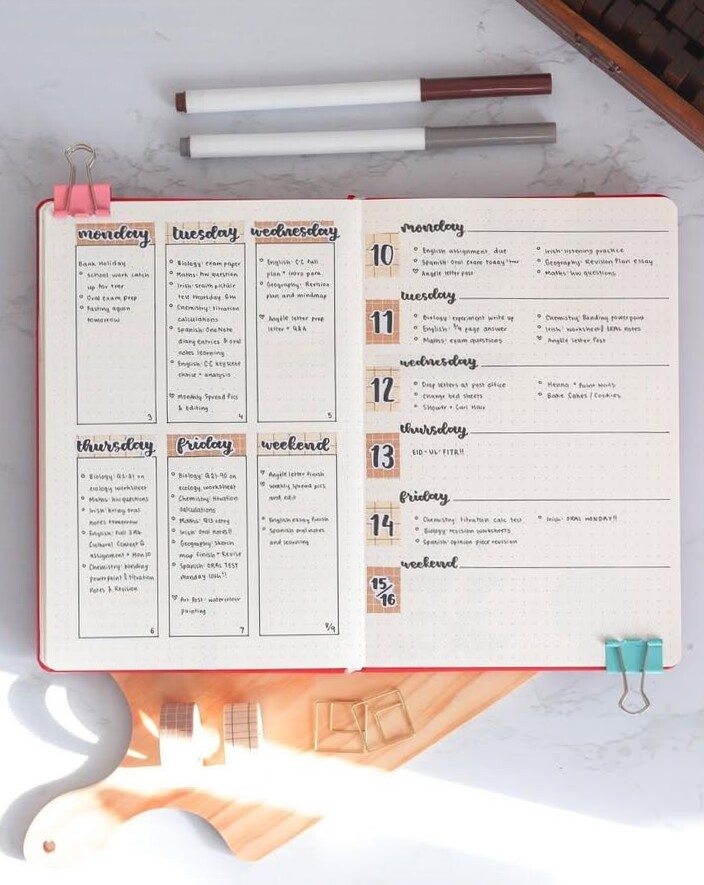 monday
Bank Holiday
school work catch
up for tmr
Oral exam prep
Fasting again
tomorrow
3
tuesday
Biology: exam paper
Maths: HW question
Irish:
test thursday 6th
Chemistry: titration
calculations
Spanish: OneNote
diary entries & oral
notes learning
English: CC key scene
choice + analysis
Monthly Spread Pics
& Editing
4
wednesday
English: CC full
plan + intro para
Geography: Revision
plan and mindmap
Angìle letter prep
letter + Q&A
5
thursday
Biology: Q1-21 on
ecology worksheet
Maths:
Irish: bring oral
notes tomorrow
English:
Cultural Context Q
assignment
Chemistry: bonding
powerpoint & titration
notes & Revision
6
friday
Biology: Q21-40 on
ecology worksheet
Chemistry: titration
calculations
Maths:
Irish: oral notes!!
Geography: sketch
map finish + Revise
Spanish: ORAL TEST
monday 10th!!
Art Post: watercolour
painting
7
weekend
letter finish
weekly spread pics
and edit
English essay finish
Spanish oral notes
and learning
8/9
monday
10
English assignment due
Spanish: Oral exam today
letter post
Irish: listening practice
Geography: Revision Plan essay
Maths: HW questions
tuesday
11
Biology: experiment write up
English: page answer
Maths: exam questions
Chemistry: Bonding powerpoint
Irish: worksheet & ORAL notes
letter Post
wednesday
12
Drop letters at post office
Change bed sheets
Shower + Curl Hair
Henna +
Bake Cakes / Cookies
thursday
13
EID-UL-FITR!!
friday
14
Chemistry: titration calc test
Biology: revision worksheets
Spanish: opinion piece revision
Irish: ORAL MONDAY!!
weekend
15/16